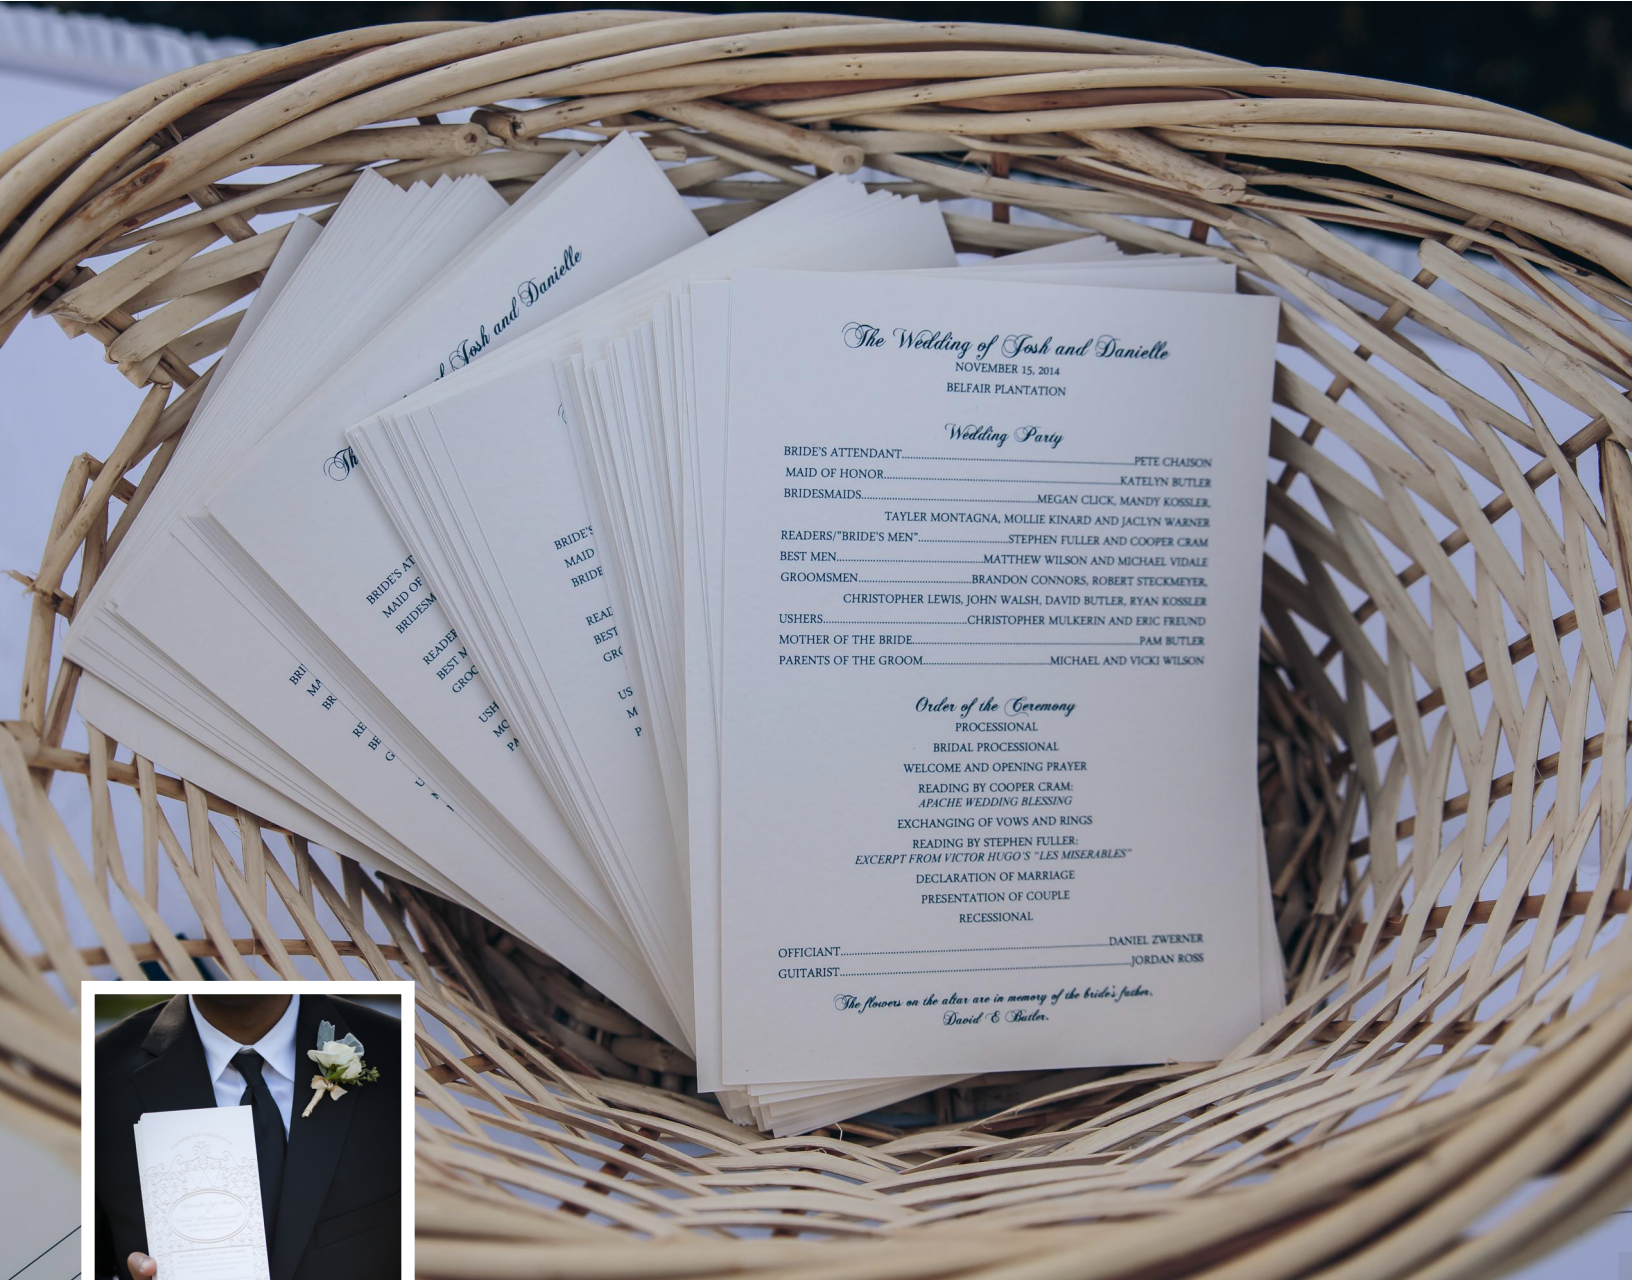 The Wedding of Josh and Danielle
NOVEMBER 15, 2014
BELFAIR PLANTATION
Wedding Party
BRIDE'S ATTENDANT....................PETE CHAISON
MAID OF HONOR....................KATELYN BUTLER
BRIDESMAIDS....................MEGAN CLICK, MANDY KOSSLER,
TAYLER MONTAGNA, MOLLIE KINARD AND JACLYN WARNER
READERS/"BRIDE'S MEN"....................STEPHEN FULLER AND COOPER CRAM
BEST MEN....................MATTHEW WILSON AND MICHAEL VIDALE
GROOMSMEN....................BRANDON CONNORS, ROBERT STECKMEYER,
CHRISTOPHER LEWIS, JOHN WALSH, DAVID BUTLER, RYAN KOSSLER
USHERS....................CHRISTOPHER MULKERIN AND ERIC FREUND
MOTHER OF THE BRIDE....................PAM BUTLER
PARENTS OF THE GROOM....................MICHAEL AND VICKI WILSON
Order of the Ceremony
PROCESSIONAL
BRIDAL PROCESSIONAL
WELCOME AND OPENING PRAYER
READING BY COOPER CRAM:
APACHE WEDDING BLESSING
EXCHANGING OF VOWS AND RINGS
READING BY STEPHEN FULLER:
EXCERPT FROM VICTOR HUGO'S "LES MISERABLES"
DECLARATION OF MARRIAGE
PRESENTATION OF COUPLE
RECESSIONAL
OFFICIANT....................DANIEL ZWERNER
GUITARIST....................JORDAN ROSS
The flowers on the altar are in memory of the bride's father,
David E Butler.
of Josh and Danielle
Th
BRIDE'S AT
MAID OF
BRIDESM
READER
BEST M
GROO
USH
MO
PA
BRIDE'S
MAID
BRIDE
READ
BEST
GRO
US
M
P
BRI
MA
BR
RE
BE
G
U